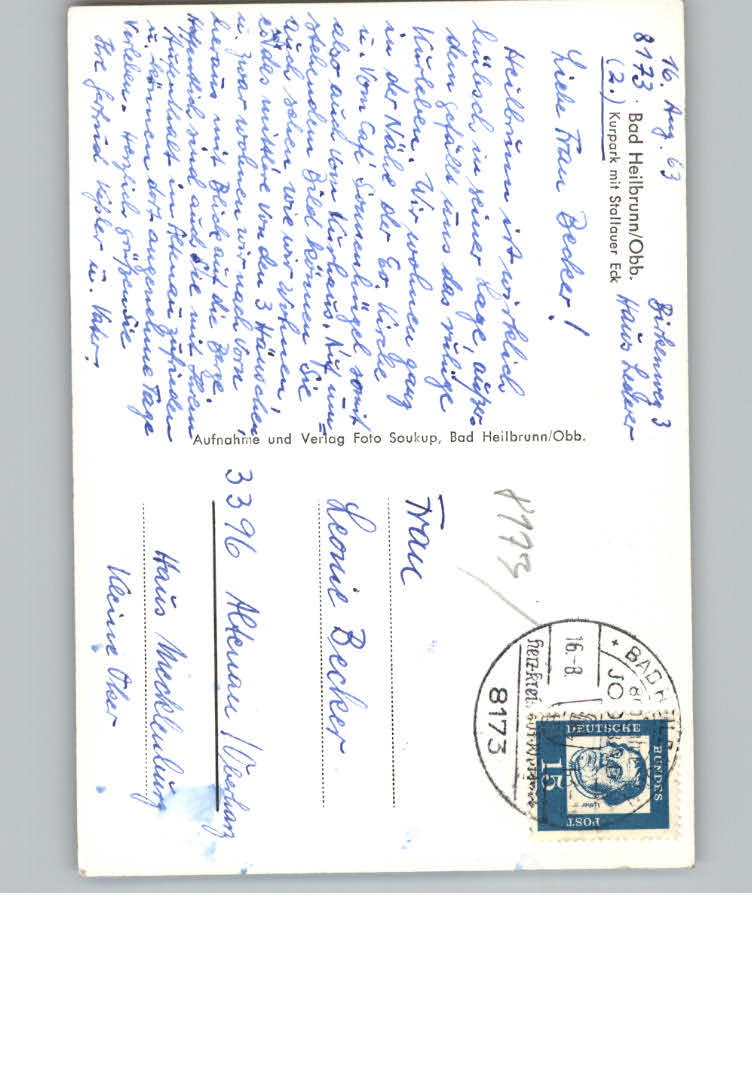 16. Aug. 63
8173. Bad Heilbrunn/Obb.
(2.) Kurpark mit Stallauer Eck
Birkenweg 3
Haus Lederer
Liebe Frau Becker!
Heilbrunn ist wirklich
hübsch in seiner Lage, außer
dem gefällt uns das ruhige
Kurleben. Wir wohnen ganz
in der Nähe der Ev. Kirche
u. vom Café Sonnenhügel somit
also auch vom Kurhaus. Auf um=
stehendem Bild können Sie
auch sehen wie wir wohnen,
es das mittlere von den 3 Häuschen,
u. zwar wohnen wir nach vorn
heraus mit Blick auf die Berge.
Hoffentlich sind auch Sie mit Ihrem
Aufenthalt in Altenau zufrieden
u. können dort angenehme Tage
verleben. Herzlich grüßen Sie
Ihre u. Vater.
Aufnahme und Verlag Foto Soukup, Bad Heilbrunn/Obb.
8173
Frau
Leonie Becker
3396 Altenau / Oberharz
Haus Mecklenburg
Kleine Oker
BAD HEILB
JO
16.-8.
8173
DEUTSCHE
BUNDES
POST
15